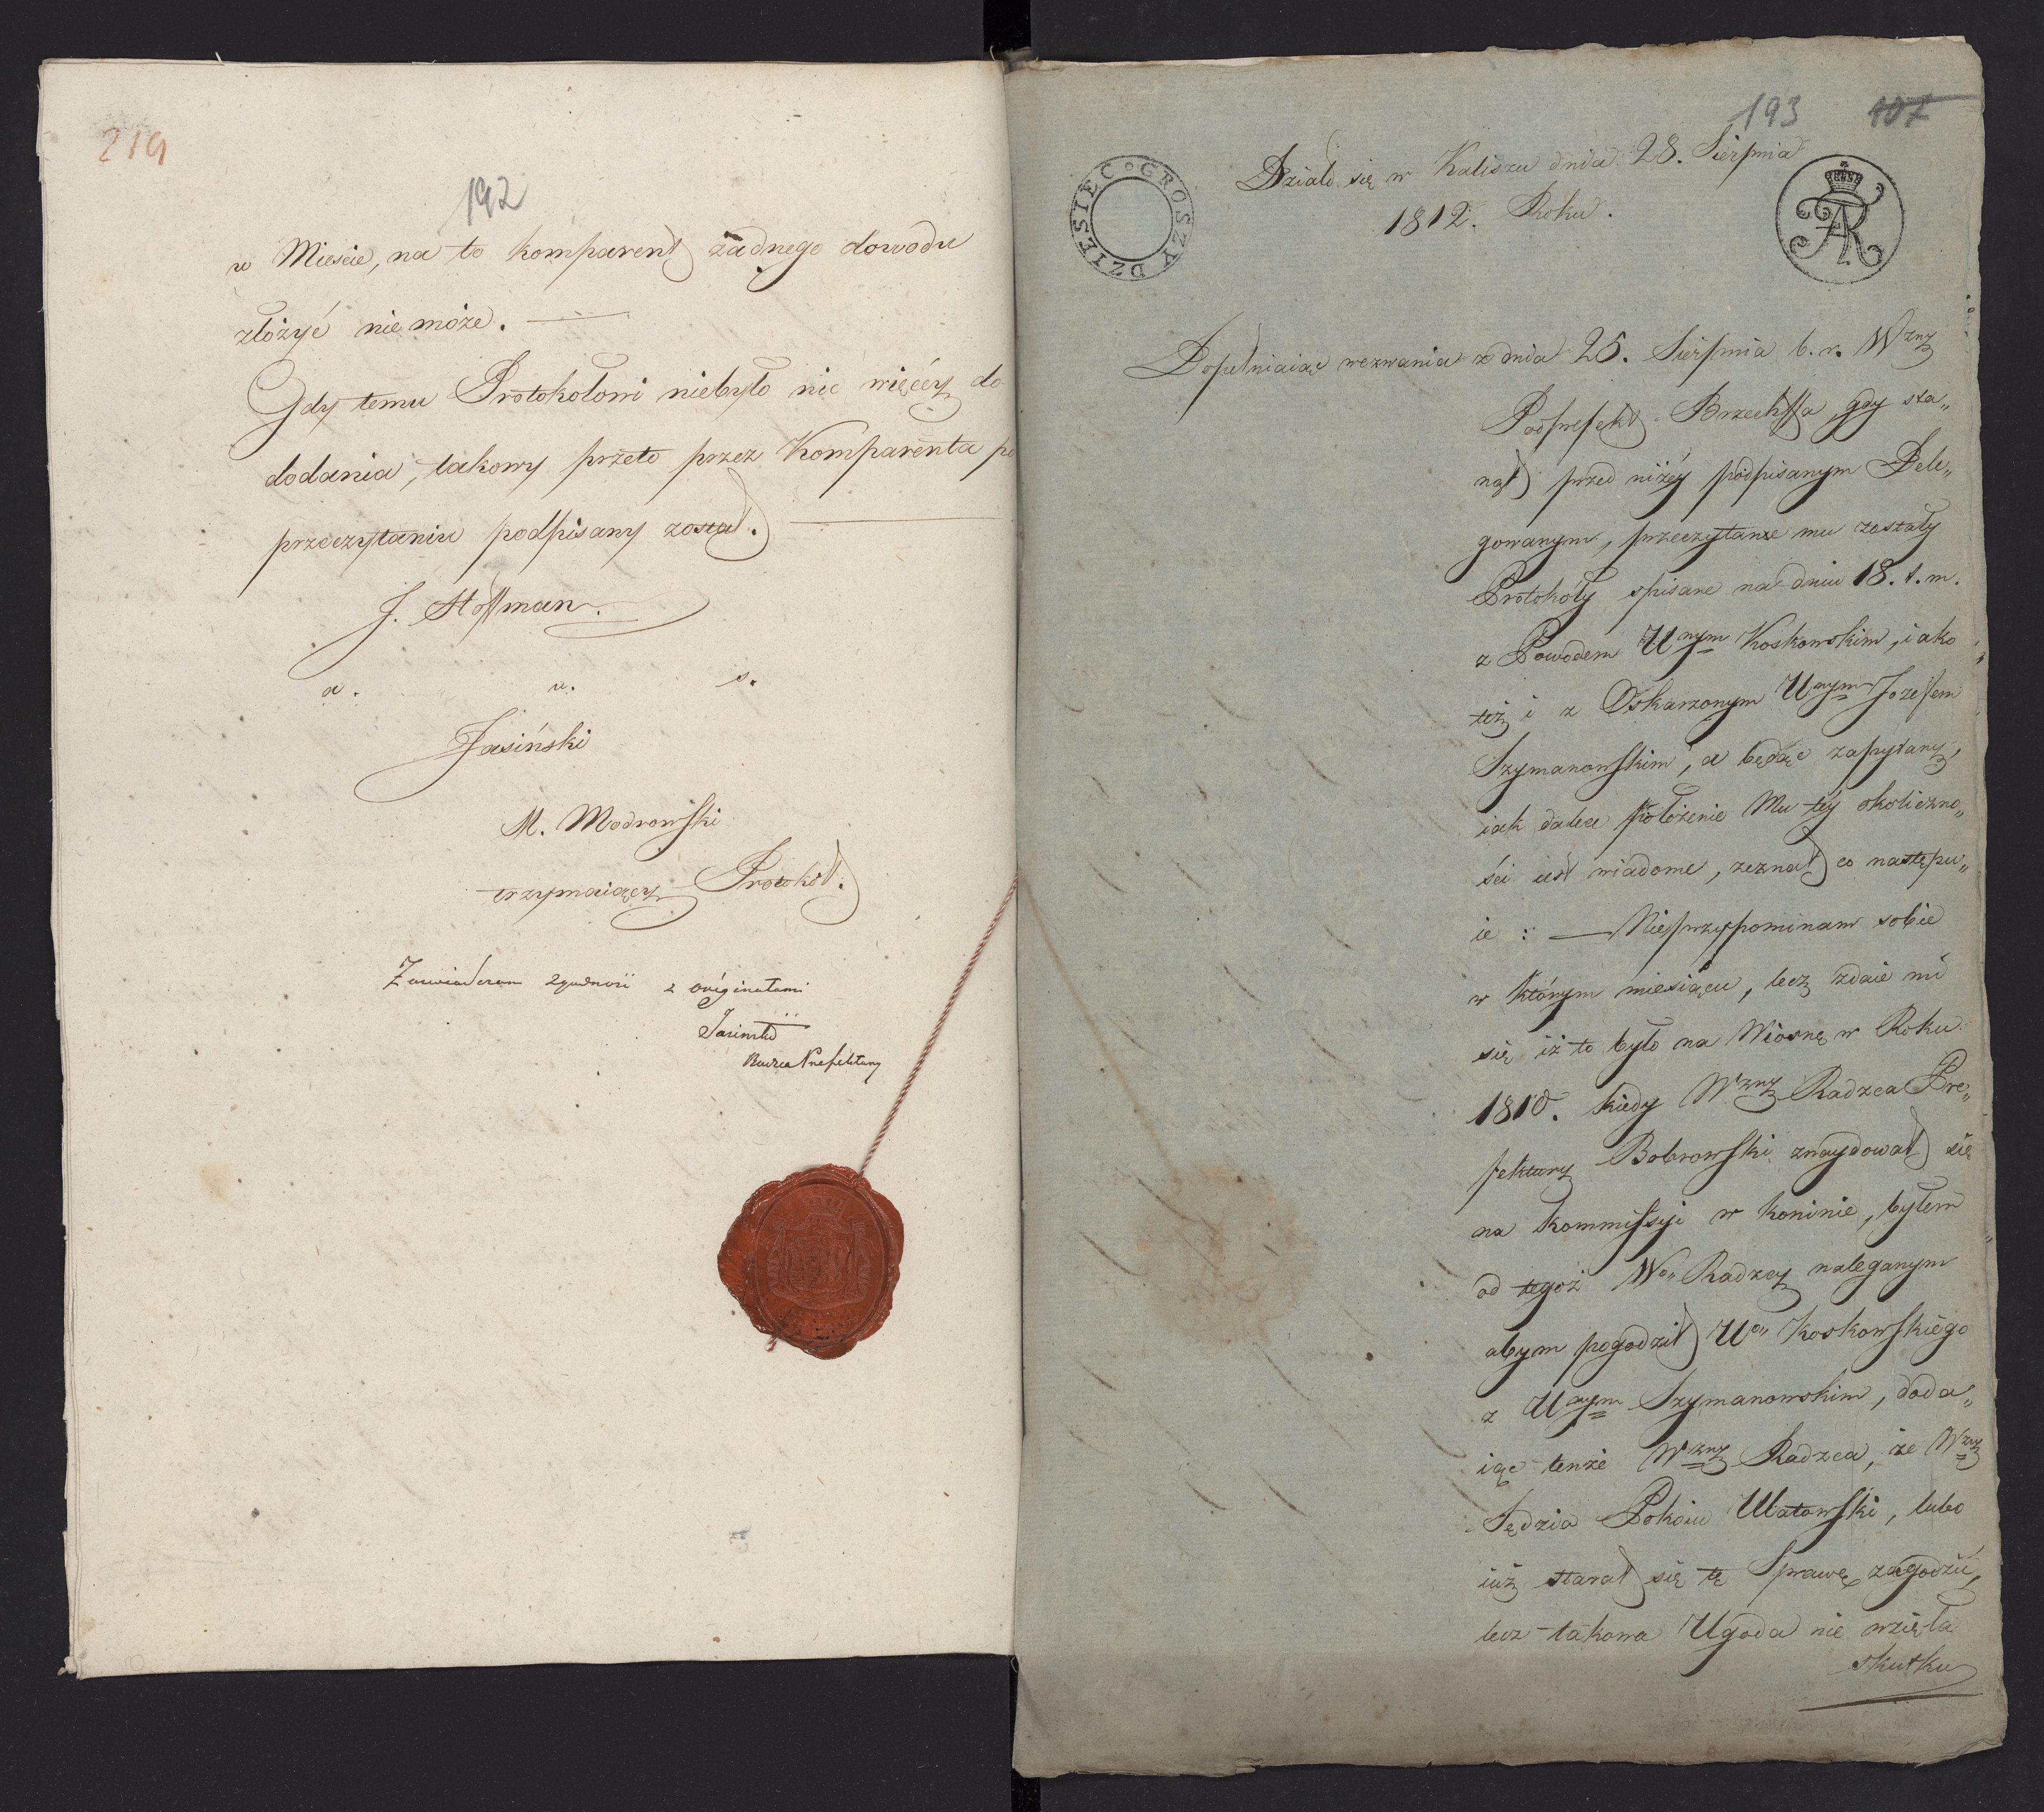 219
192
w Mieście, na to komparent żadnego dowodu
złożyć nie może.
Gdy temu Protokołowi niebyło nic więcéy do
dodania, takowy przeto przez Komparenta po
przeczytaniu podpisany został.
J. Hoffman.
a. u. s.
Jasiński
M. Modrowski
trzymaiący Protokół.
Zaswiadczam zgodność z originałami
Jasiński
Radca Prefektury
193 107
GROSZY DZIESIEC
Działo się w Kaliszu dnia 28. Sierpnia
1812. Roku.
Dopełniaiąc wezwania z dnia 25. Sierpnia b. r. Wzny
Podprefekt Brzechffa, gdy sta„
nął przed niżéy podpisanym Dele„
gowanym, przeczytane mu zostały
Protokóły spisane na dniu 18. t. m.
z Powodem Unym Koskowskim, iako
też i z Oskarzonym Unym Jozefem
Szymanowskim, a będąc zapytany,
iak dalece położenie Mu téy okoliczno„
ści iest wiadome, zeznał co następu„
ie : — Nieprzypominam sobie
w którym miesiącu, lecz zdaie mi
się iż to było na Wiosnę w Roku
1810. kiedy Wzny Radzca Pre„
fektury Bobrowski znaydował się
na kommissyi w koninie, byłem
od tegoż Wo„ Radzcy naleganym
abym pogodził Uo„ Koskowskiego
z Unym Szymanowskim, doda„
iąc tenże Wzny Radzca, że Wzny
Sędzia Pokoiu Ulatowski, lubo
iuż starał się tę Sprawę zagodzić,
lecz takowa Ugoda nie wzięła
skutku